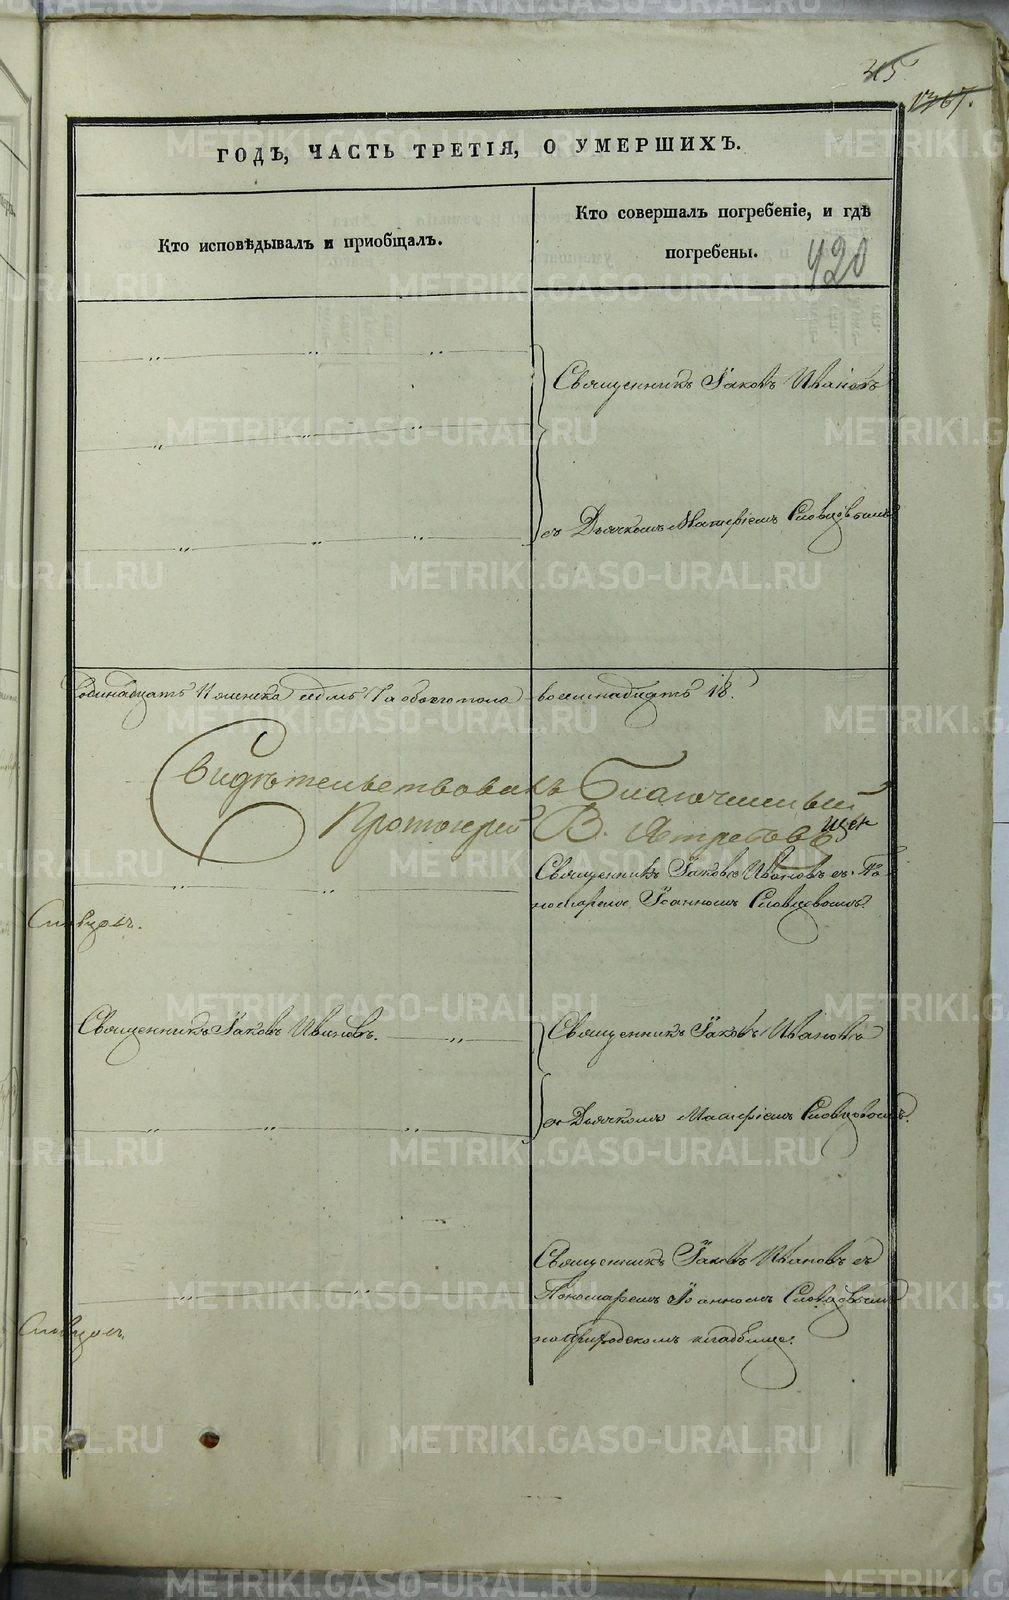 45
1267.
ГОДЪ, ЧАСТЬ ТРЕТІЯ, О УМЕРШИХЪ.
Кто исповѣдывалъ и пріобщалъ.
Кто совершалъ погребеніе, и гдѣ
погребены.
420
Священникъ Іаковъ Ивановъ
съ Дьячкомъ Словцовымъ
семь 7 а обоего пола восемнадцать 18.
Свидѣтельствовалъ Благочинный
Протоіерей В. Ястребовъ
Священникъ Іаковъ Ивановъ съ По
номаремъ Іоанномъ Словцовымъ.
Священникъ Іаковъ Ивановъ.
Священникъ Іаковъ Ивановъ
съ Дьячкомъ Словцовымъ.
Священникъ Іаковъ Ивановъ съ
Пономаремъ Іоанномъ Словцовымъ
на приходскомъ кладбище.
METRIKI.GASO-URAL.RU